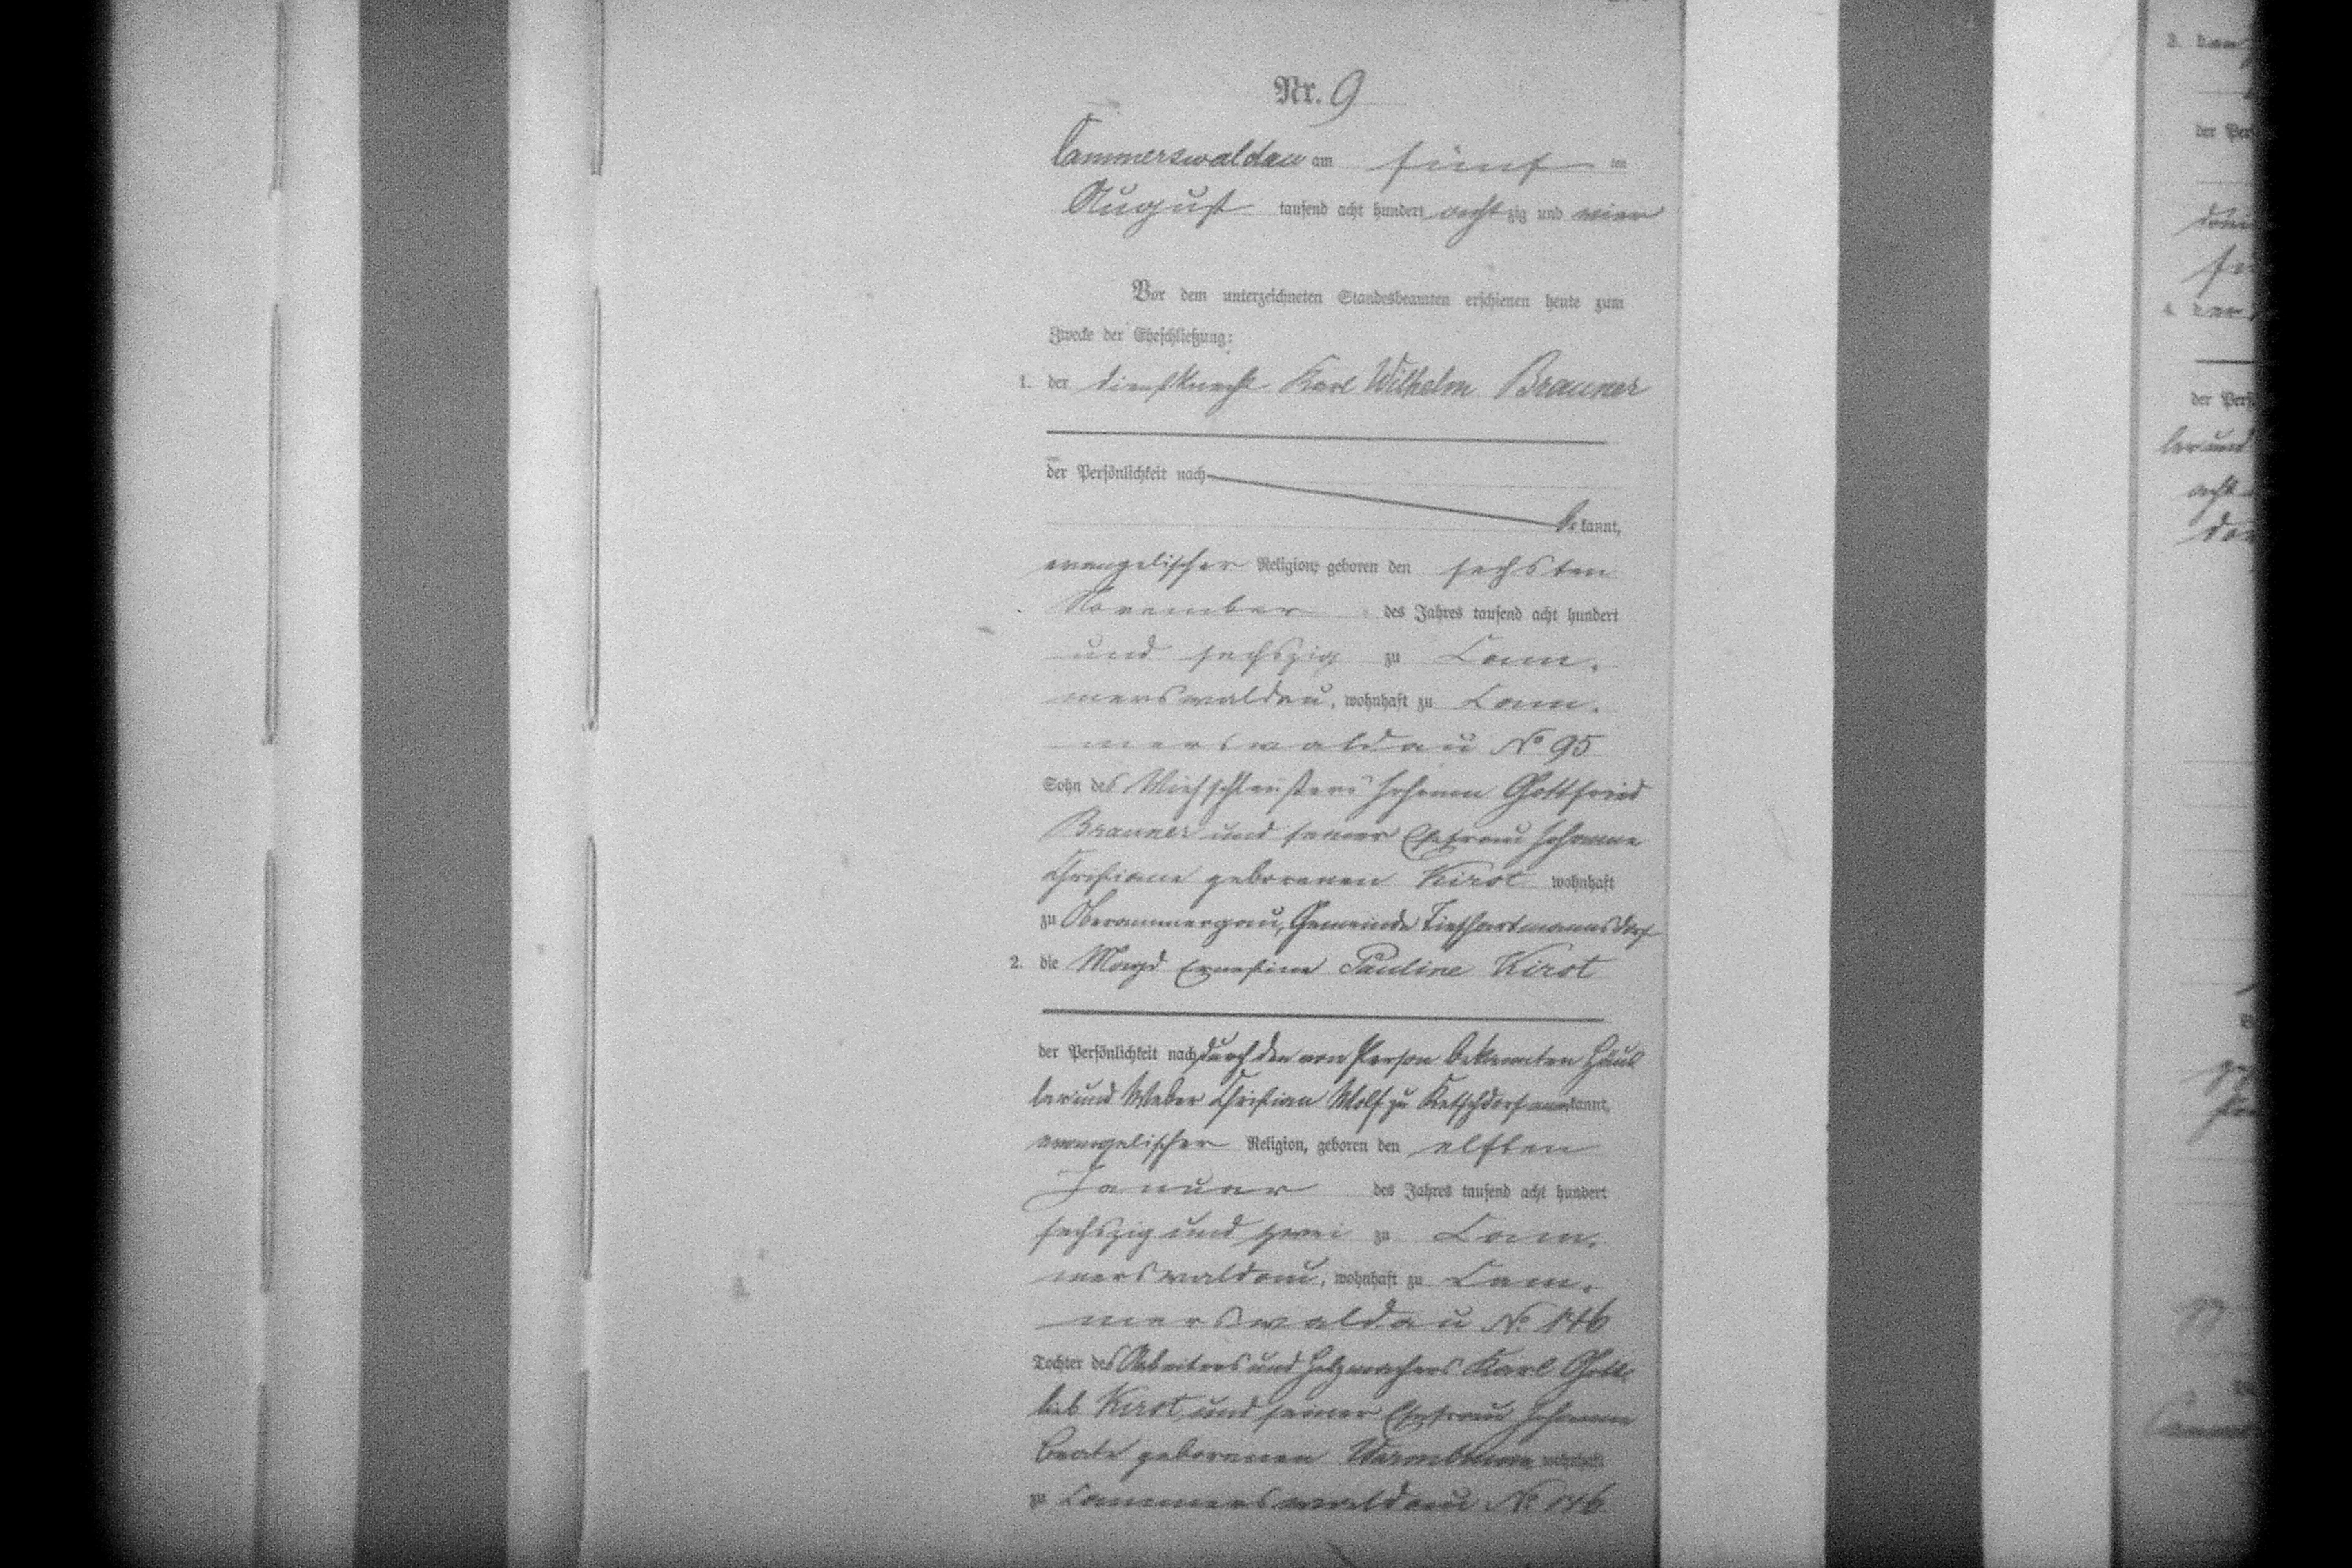 Nr. 9
Cammerswaldau am fünf ten
August tausend acht hundert achtzig und vier
Vor dem unterzeichneten Standesbeamten erschienen heute zum
Zwecke der Eheschließung:
1. der Dienstknecht Karl Wilhelm Brauner
der Persönlichkeit nach
bekannt,
evangelischer Religion, geboren den sechsten
November des Jahres tausend acht hundert
und sechszig zu Cam-
merswaldau, wohnhaft zu Cam-
merswaldau No 95
Sohn des Johann Gottfried
Brauner und seiner Ehefrau Johanne
Christiane geborenen Kirst wohnhaft
zu Oberammergau, Gemeinde Tiefhartmannsdorf
2. die Magd Ernestine Pauline Kirst
der Persönlichkeit nach durch den von Person bekannten Häus
ler und Weber Christian Wolf zu Ketschdorf anerkannt,
evangelischer Religion, geboren den elften
Januar des Jahres tausend acht hundert
sechszig und zwei zu Cam-
merswaldau, wohnhaft zu Cam-
merswaldau No 146
Tochter des Arbeiters und Holzmachers Karl Gott-
lieb Kirst, und seiner Ehefrau Johanne
Beate geborenen wohnhaft
zu Cammerswaldau No 146